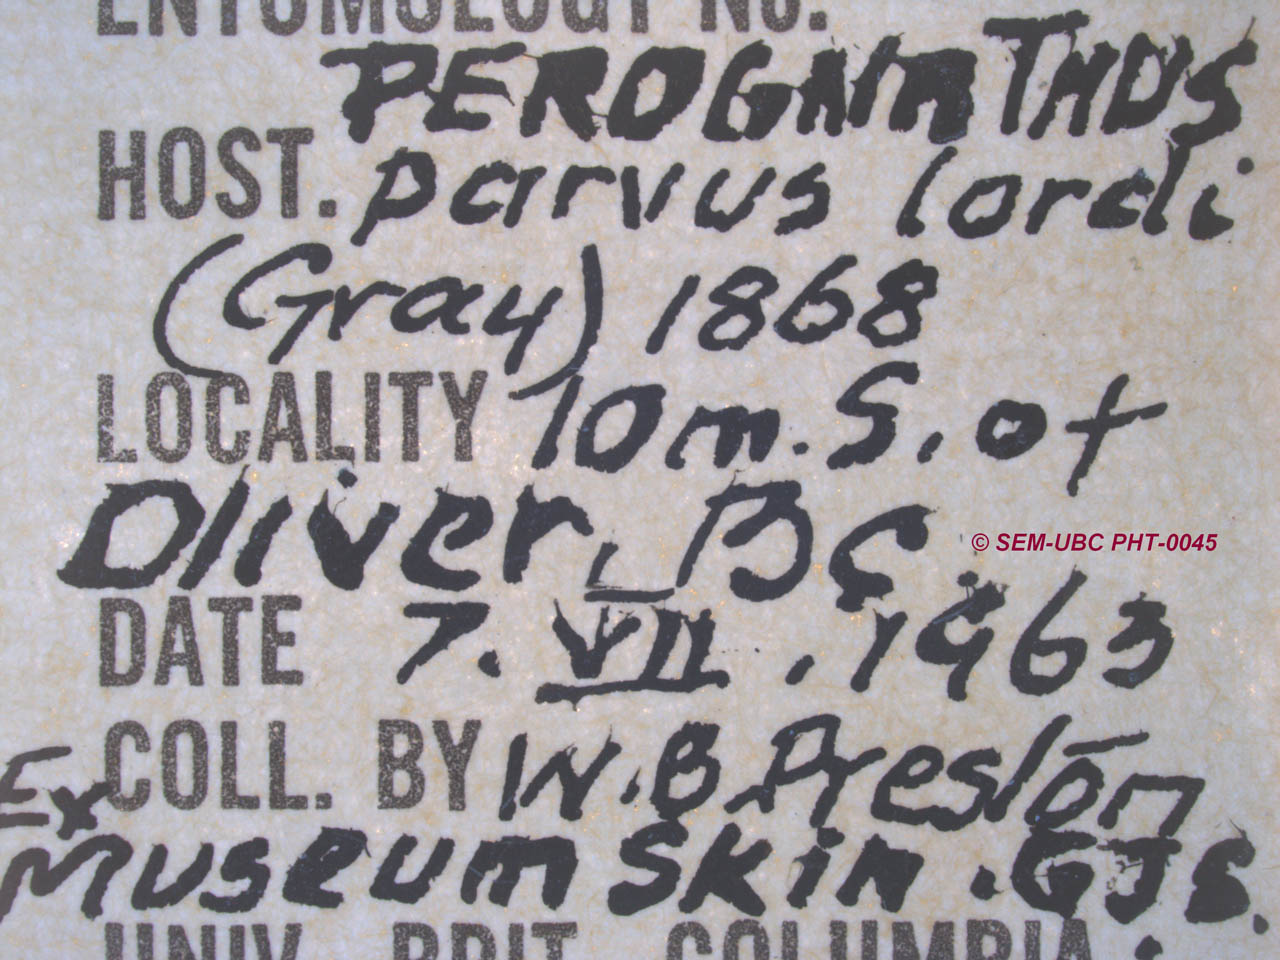 ENTOMOLOGY NO.
PEROGNATHUS.
HOST. parvus lordi
(Gray) 1868
LOCALITY 10 m. S. of
Oliver, BC
© SEM-UBC PHT-0045
DATE 7. VII. 1963
COLL. BY W. B. Preston
Ex
Museum Skin. GJS.
UNIV. BRIT. COLUMBIA.